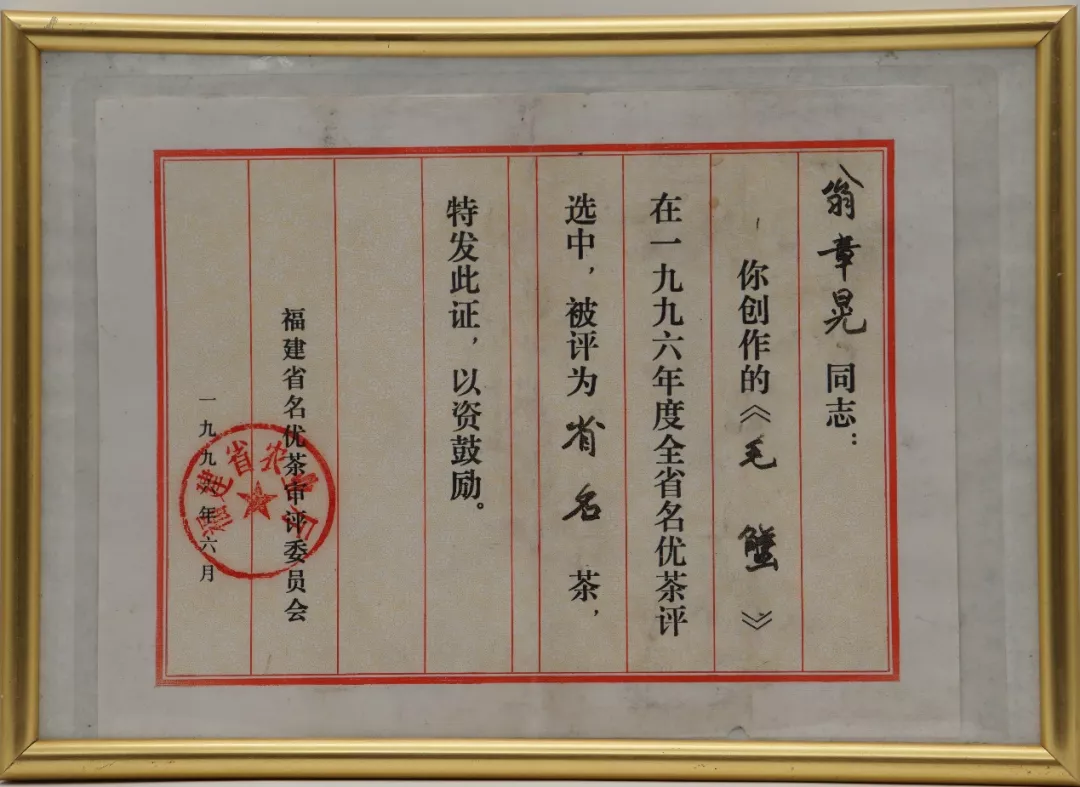 翁章晃同志：
你创作的《毛蟹》
在一九九六年度全省名优茶评
选中，被评为省名茶，
特发此证，以资鼓励。
福建省名优茶审评委员会
一九九 年六月
福建省农